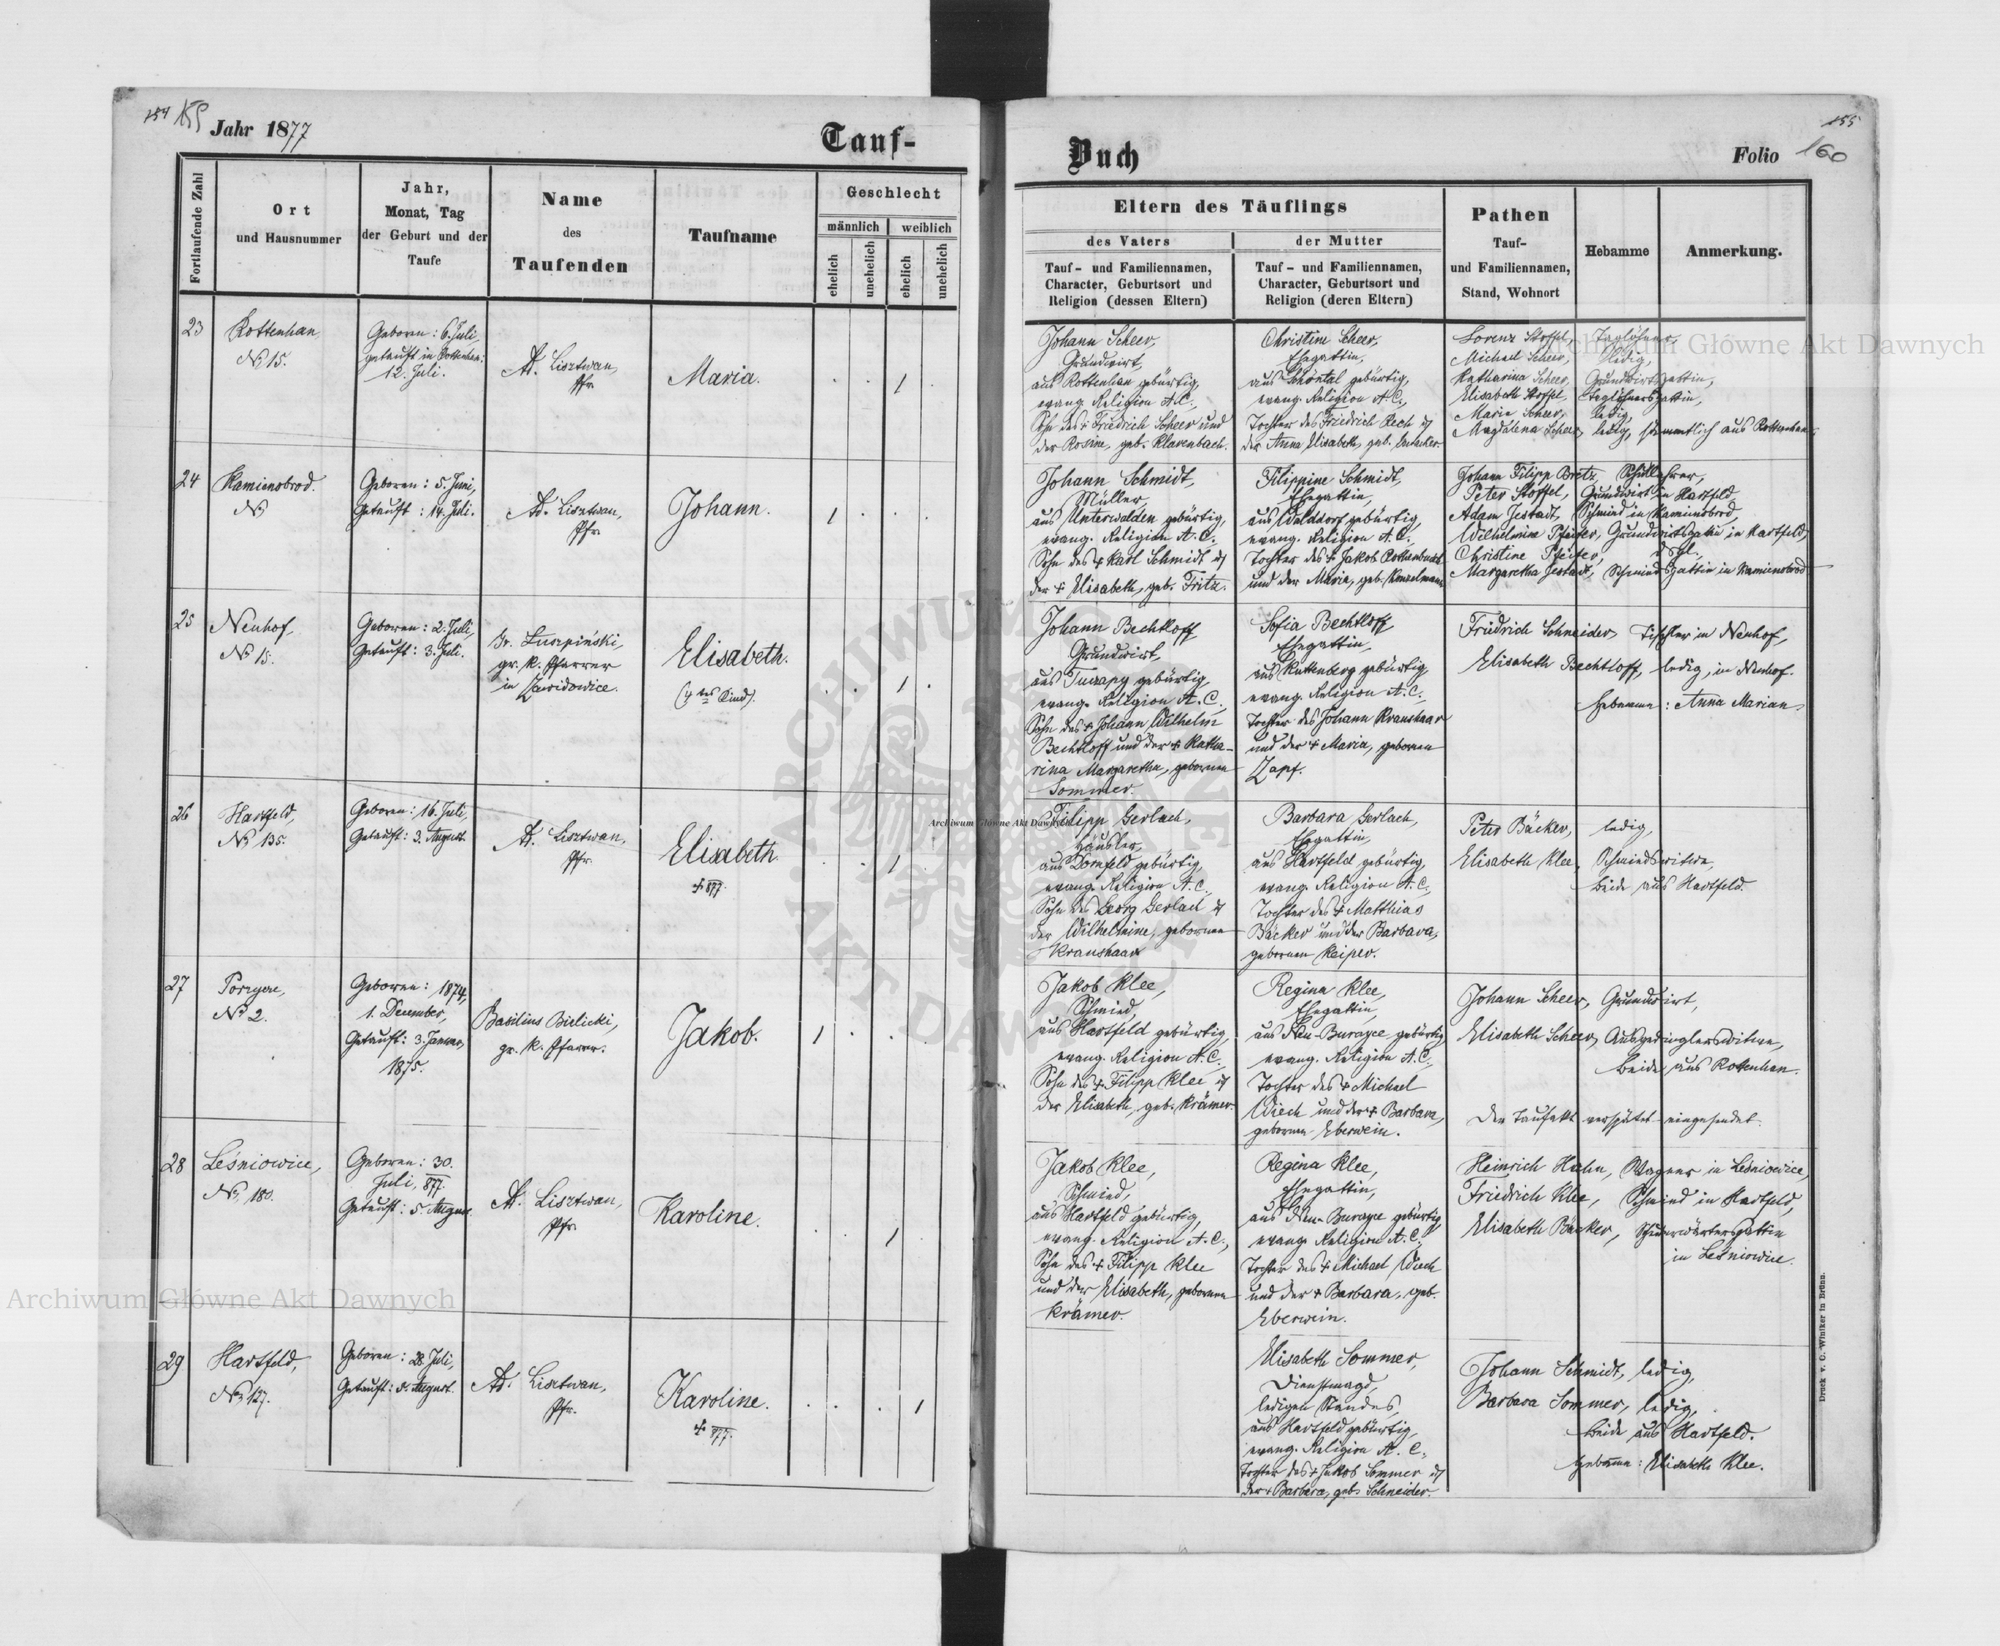 154 159
Jahr 1877
Tauf-
Fortlaufende Zahl
Ort
und Hausnummer
Jahr,
Monat, Tag
der Geburt und der
Taufe
Name
des
Taufenden
Taufname
Geschlecht
männlich
weiblich
ehelich
unehelich
ehelich
unehelich
23
Rottenhan
No 15.
Geboren: 6. Juli,
getauft in Rottenhan:
12. Juli.
Ad. Lisztwan,
Pfr.
Maria.
1
24
Kamienobrod.
No
Geboren: 5. Juni,
Getauft: 14. Juli.
Ad. Lisztwan,
Pfr.
Johann.
1
25
Neuhof,
No 15.
Geboren: 2. Juli,
Getauft: 3. Juli.
gr. k. Pfarrer
in Zawidowice.
Elisabeth.
(4tes Kind).
1
26
Hartfeld,
No 135.
Geboren: 16. Juli,
Getauft: 3. August.
Ad. Lisztwan,
Pfr.
Elisabeth.
† 877.
1
27
Porzyce,
No 2.
Geboren: 1874,
1. December,
Getauft: 3. Januar,
1875.
Basilius Bielicki,
gr. k. Pfarrer.
Jakob.
1
28
Leśniowice,
No 180.
Geboren: 30.
Juli, 877.
Getauft: 5. August.
Ad. Lisztwan,
Pfr.
Karoline.
1
29
Hartfeld,
No 127.
Geboren: 28. Juli,
Getauft: 5. August.
Ad. Lisztwan,
Pfr.
Karoline.
† 877.
1
Buch
155
Folio 160
Eltern des Täuflings
des Vaters
der Mutter
Tauf- und Familiennamen,
Character, Geburtsort und
Religion (dessen Eltern)
Tauf- und Familiennamen,
Character, Geburtsort und
Religion (deren Eltern)
Pathen
Tauf-
und Familiennamen,
Stand, Wohnort
Hebamme
Anmerkung.
Johann Scheer,
Grundwirt,
aus Rottenhan gebürtig,
evang. Religion A.C.,
Sohn des † Friedrich Scheer und
der Rosine, geb. Klarenbach.
Christine Scheer,
Ehegattin,
aus Schöntal gebürtig,
evang. Religion A.C.,
Tochter des Friedrich Rech u
der Anna Elisabeth, geb.
Lorenz Stoffel, Taglöhner,
Michael Scheer, ledig,
Katharina Scheer, Grundwirtsgattin,
Elisabeth Stoffel, Taglöhnersgattin,
Marie Scheer, ledig,
Magdalena Scheer, ledig, sämmtlich aus Rottenhan.
Johann Schmidt,
Müller,
aus Unterwalden gebürtig,
evang. Religion A.C.
Sohn des † Karl Schmidt u
der † Elisabeth, geb. Fritz.
Filippine Schmidt,
Ehegattin,
aus Walddorf gebürtig,
evang. Religion A.C.,
Tochter des † Jakob
und der Maria, geb. Kinzelmann
Johann Filipp Bretz, Schullehrer,
Peter Stoffel, Grundwirt in Hartfeld,
Adam Jestadt, Schmied in Kamienobrod,
Wilhelmine Pfeifer, Grundwirtsgattin in Hartfeld,
Christine Pfeifer, dsgl.
Margaretha Jestadt, Schmiedsgattin in Kamienobrod
Johann Bechtloff,
Grundwirt,
aus gebürtig,
evang. Religion A.C.,
Sohn des † Johann Wilhelm
Bechtloff und der † Katha-
rina Margaretha, gebornen
Sommer.
Sofia Bechtloff,
Ehegattin,
aus Ruttenberg gebürtig
evang. Religion A.C.,
Tochter des Johann Kranshaar
und der † Maria, gebornen
Zapf.
Friedrich Schneider, Tischler in Neuhof,
Elisabeth Bechtloff, ledig, in Neuhof.
Hebamme: Anna Marian.
Filipp Gerlach,
Häusler,
aus Dornfeld gebürtig,
evang. Religion A.C.
Sohn des Georg Gerlach u
der Wilhelmine, gebornen
Kranshaar
Barbara Gerlach,
Ehegattin,
aus Hartfeld gebürtig,
evang. Religion A.C.,
Tochter des † Matthias
Bäcker und der Barbara,
gebornen Keiper.
Peter Bäcker, ledig,
Elisabeth Klee, Schmiedswitwe,
beide aus Hartfeld.
Jakob Klee,
Schmied,
aus Hartfeld gebürtig,
evang. Religion A.C.,
Sohn des † Filipp Klee u
der Elisabeth, geb. Krämer.
Regina Klee,
Ehegattin,
aus Neu-Burayce gebürtig
evang. Religion A.C.,
Tochter des † Michael
Wiech und der † Barbara,
gebornen Eberwein.
Johann Scheer, Grundwirt,
Elisabeth Scheer, Ausgedinglerswitwe,
beide aus Rottenhan.
Der Taufakt verspätet eingesendet.
Jakob Klee,
Schmied,
aus Hartfeld gebürtig,
evang. Religion A.C.,
Sohn des † Filipp Klee
und der Elisabeth, gebornen
Krämer.
Regina Klee,
Ehegattin,
aus Neu-Burayce gebürtig,
evang. Religion A.C.,
Tochter des † Michael Wiech
und der † Barbara, geb.
Eberwein.
Heinrich Hahn, Wagner in Leśniowice,
Friedrich Klee, Schmied in Hartfeld,
Elisabeth Bäcker,
in Leśniowice.
Elisabeth Sommer,
Dienstmagd,
ledigen Standes,
aus Hartfeld gebürtig,
evang. Religion A.C.
Tochter des † Jakob Sommer u
der † Barbara, geb. Schneider.
Johann Schmidt, ledig,
Barbara Sommer, ledig,
beide aus Hartfeld.
Hebamme: Elisabeth Klee.
Druck v. C. Winiker in Brünn.
Archiwum Główne Akt Dawnych
Archiwum Główne Akt Dawnych
Archiwum Główne Akt Dawnych
ARCHIWUM GŁÓWNE AKT DAWNYCH